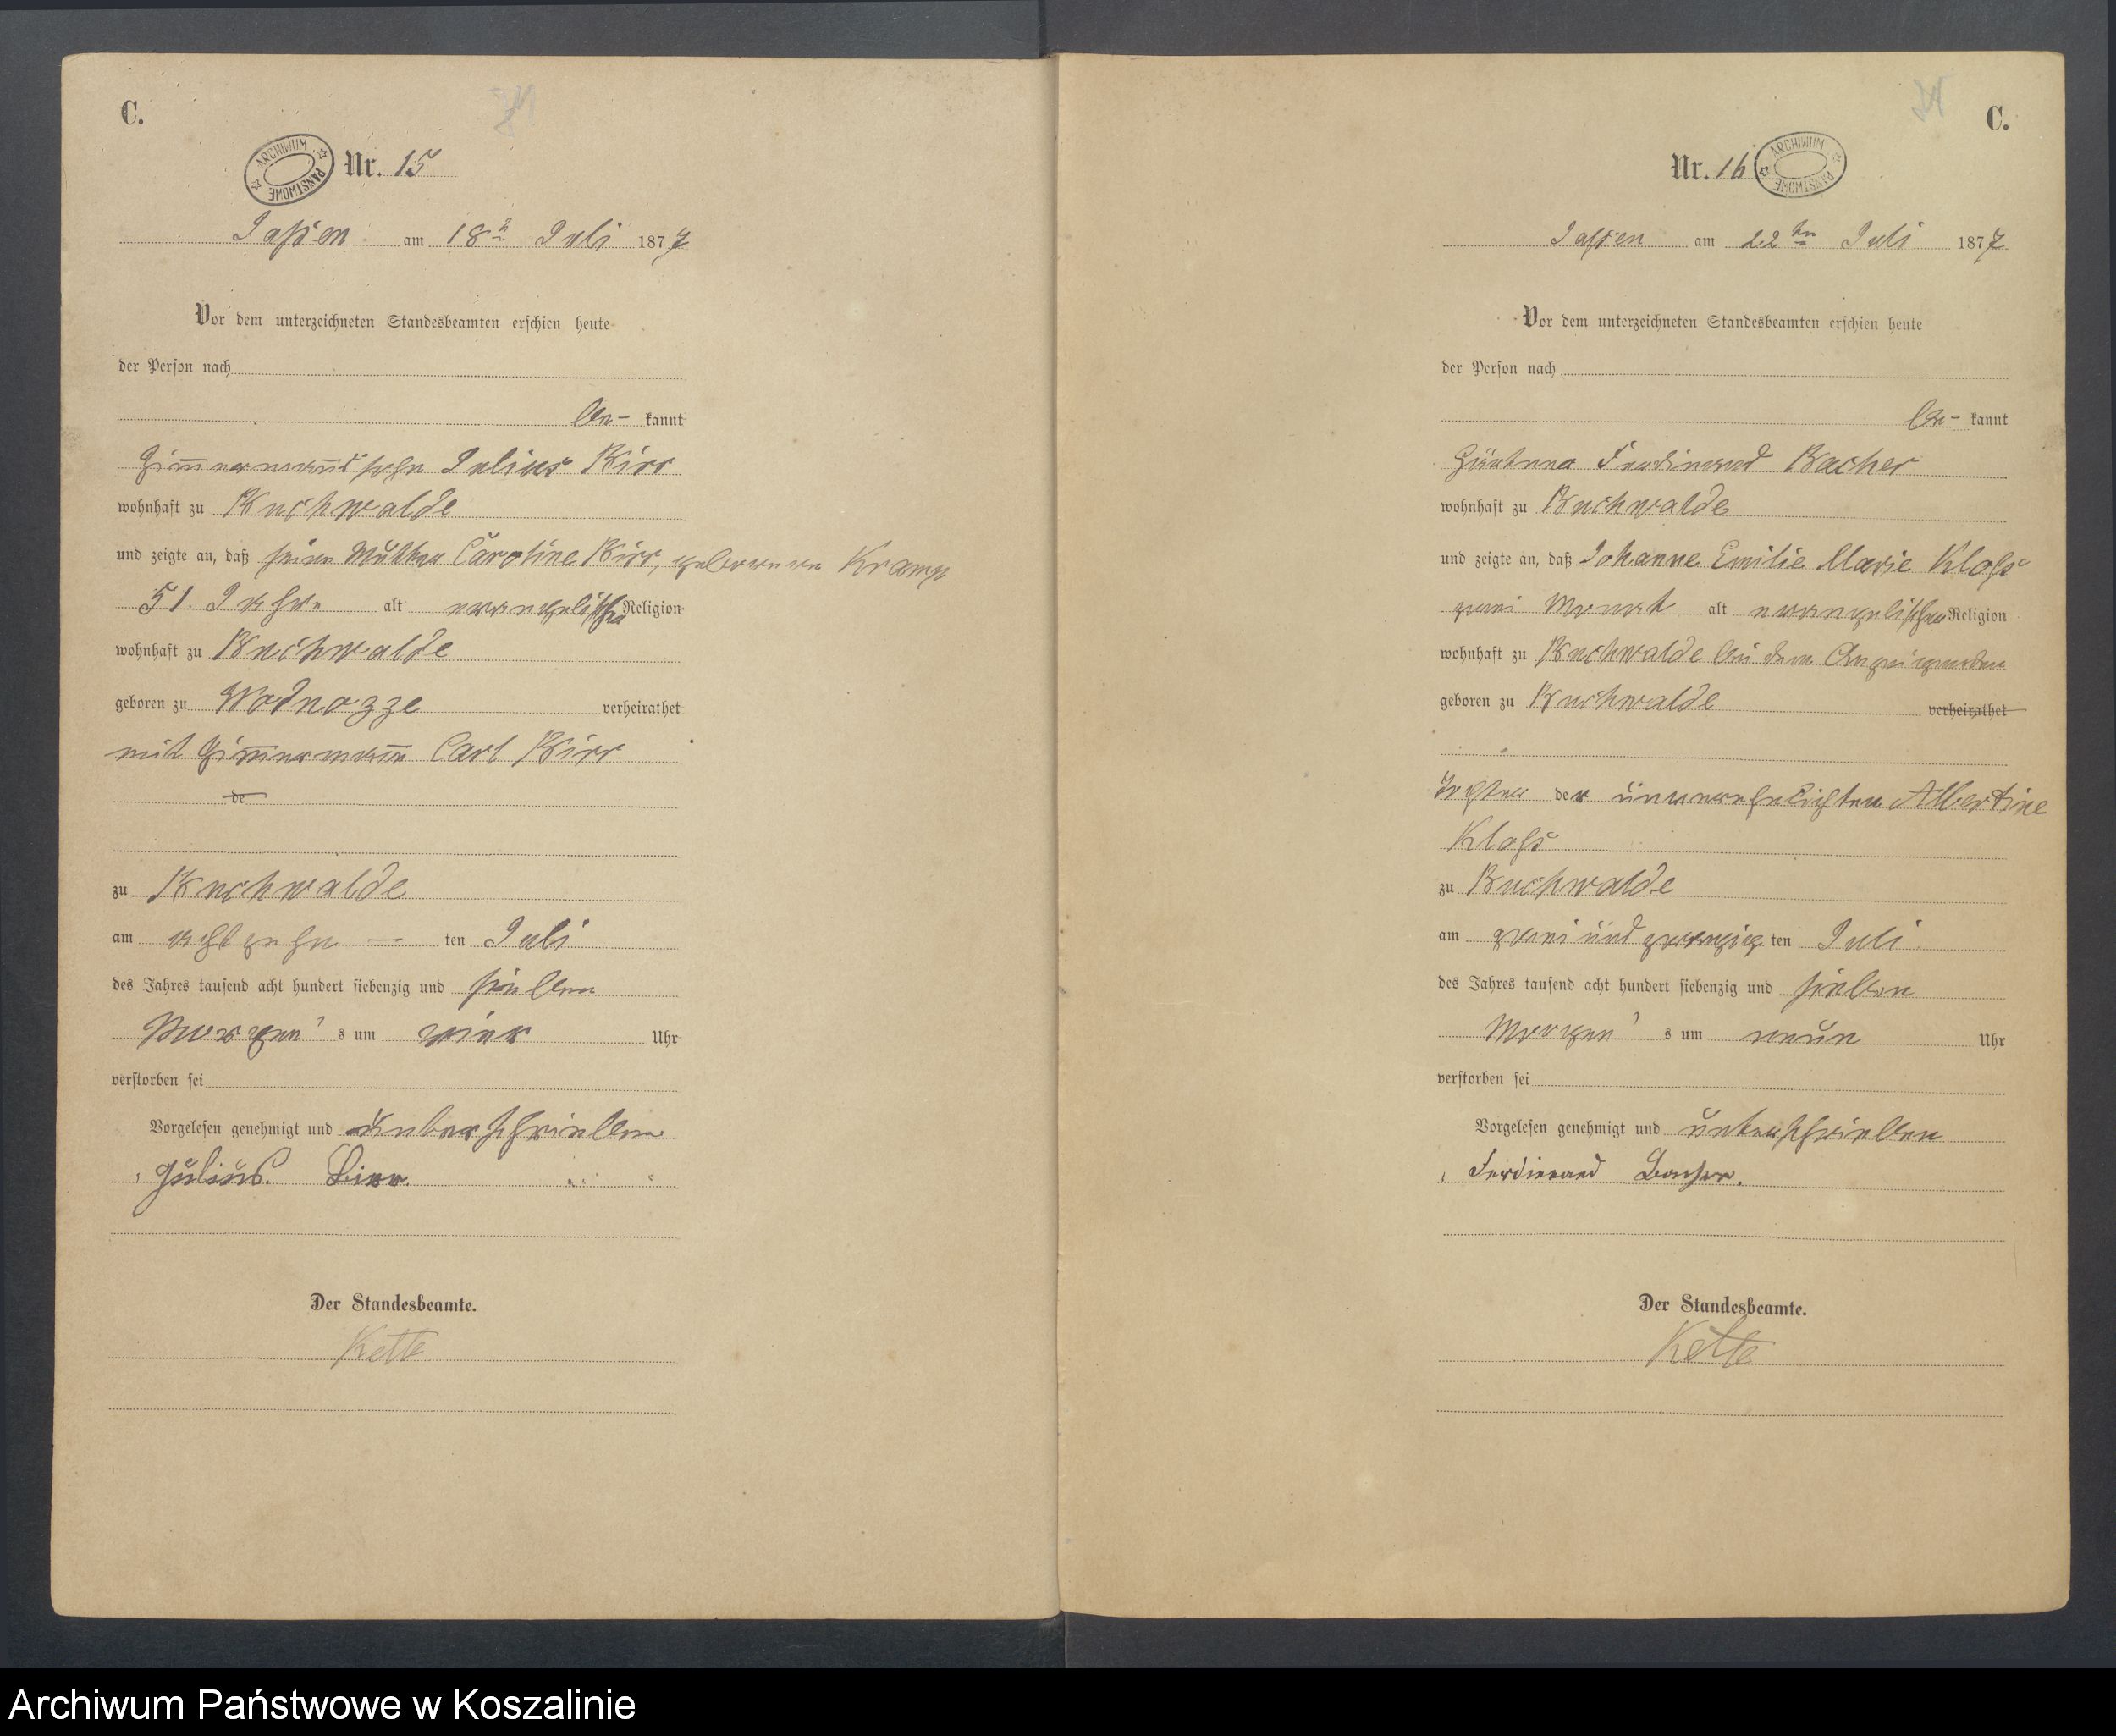 C.
ARCHIWUM PAŃSTWOWE
Nr. 15
Jassen am 18n Juli 1877
Vor dem unterzeichneten Standesbeamten erschien heute
der Person nach
be- kannt
Zim̅ermañssohn Julius Birr
wohnhaft zu Buchwalde
und zeigte an, daß seine Mutter Caroline Birr, geborenen Kramp
51 Jahre alt evangelischer Religion
wohnhaft zu Buchwalde
geboren zu Wodnogge verheirathet
mit Zim̅ermañ Carl Birr
de
zu Buchwalde
am achtzehn — ten Juli
des Jahres tausend acht hundert siebenzig und sieben
Morgen's um vier Uhr
verstorben sei
Vorgelesen genehmigt und unterschrieben
Julius Birr.
Der Standesbeamte.
Kette
C.
Nr. 16
ARCHIWUM PAŃSTWOWE
Jassen am 22ten Juli 1877
Vor dem unterzeichneten Standesbeamten erschien heute
der Person nach
be- kannt
Gärtner Ferdinand Bacher
wohnhaft zu Buchwalde
und zeigte an, daß Johanne Emilie Marie Kloss
zwei Monat alt evangelischer Religion
wohnhaft zu Buchwalde bei dem Anzeigenden
geboren zu Buchwalde verheirathet
Tochter der unverehelichten Albertine
Kloss
zu Buchwalde
am zwei und zwanzig ten Juli
des Jahres tausend acht hundert siebenzig und sieben
Morgen's um neun Uhr
verstorben sei
Vorgelesen genehmigt und unterschrieben
Ferdinand Bacher.
Der Standesbeamte.
Kette
Archiwum Państwowe w Koszalinie